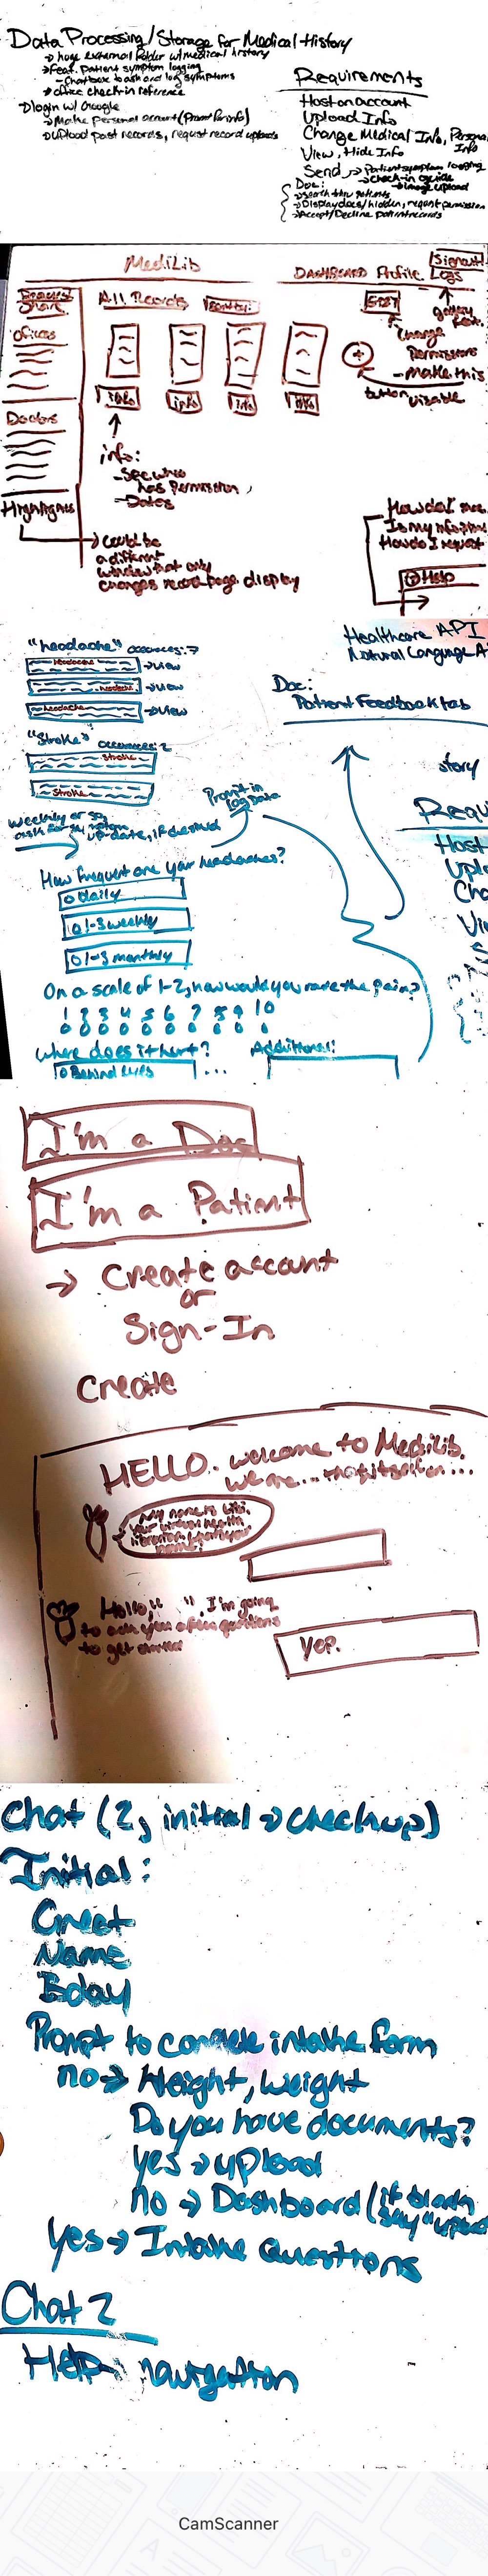 Data Processing/Storage for Medical History
→ huge external folder w/ medical history
→ Feat. patient symptom logging
→ Chatbox to ask and log symptoms
→ office check-in reference
→ login w/ Google
→ Make personal account (Prompt for info)
→ upload past records, request record uploads
Requirements
Host on account
Upload Info
Change Medical Info, Persona
Info
View, Hide Info
Send → Patient symptom logging
→ check-in guide
→ image upload
Doc:
→ search thru patients
→ Display docs/hidden, request permission
→ Accept/Decline patient records
MediLib
DASHBOARD Profile Logs
Signout
Share
All Records
EDIT
Offices
Doctors
Highlights
info
info
info
info
info:
- See who
has Permission,
- Dates
→ could be
a different
window that only
changes record page display
Change
Permissions
- make this
button visable
How do I
Is my info
How do I request
? Help
"headache" occurences: 7
headache → view
headache → view
headache → view
"Stroke" occurences: 2
stroke
stroke
Weekly or so,
ask for symptom
update, if desired
Prompt in
log Data
Healthcare API
Natural Language A
Doc:
Patient Feedback tab
story
Requi
Host
Uplo
Cha
Vie
S
How frequent are your headaches?
O daily
O 1-3 weekly
O 1-3 monthly
On a scale of 1-2, how would you rate the pain?
1 2 3 4 5 6 7 8 9 10
Where does it hurt? Additional:
O Behind eyes ...
I'm a Doc
I'm a Patient
→ Create account
or
Sign-In
Create
HELLO. welcome to MediLib.
We are ...
My name is Libi,
your virtual health
librarian. What's your
name?
Hello, " ", I'm going
to ask you a few questions
to get started
yep.
Chat (2, initial → checkup)
Initial:
Greet
Name
Bday
Prompt to complete intake form
no → Height, weight
Do you have documents?
yes → upload
no → Dashboard (if blank
say "upload
yes → Intake Questions
Chat 2
Help navigation
CamScanner